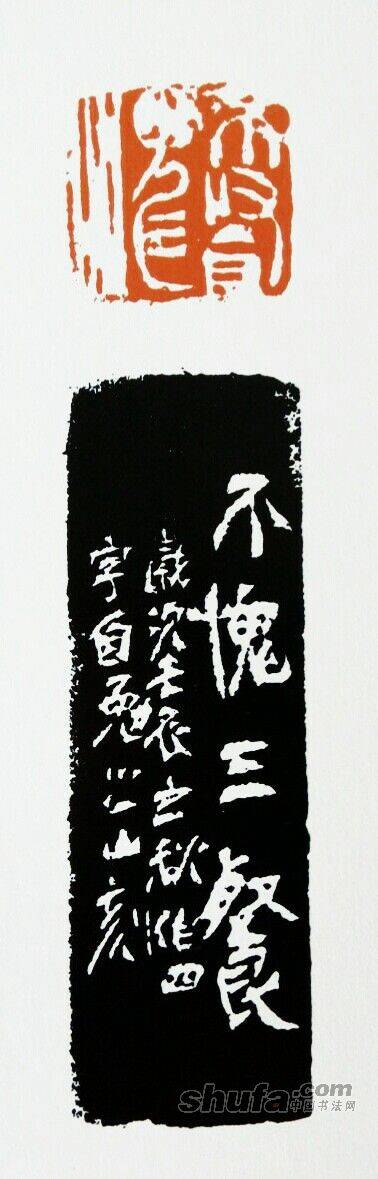 不愧三餐
歲次壬辰之秋作四
字自勉
山刻
shufa.com
中国书法网